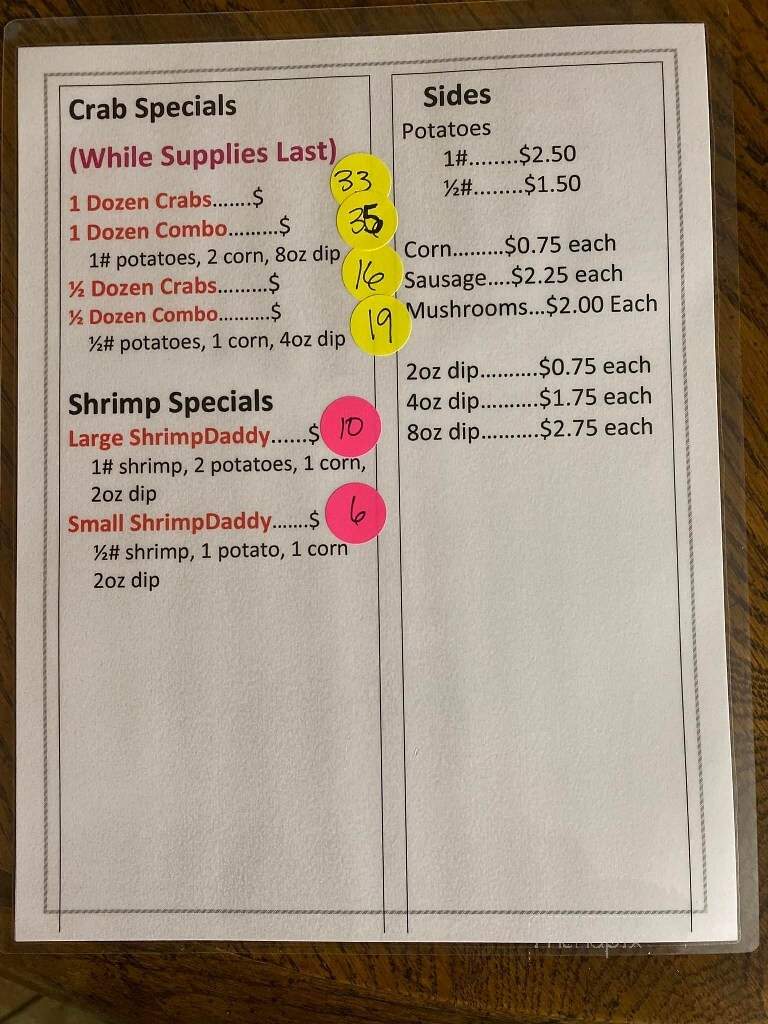 Crab Specials
(While Supplies Last)
1 Dozen Crabs.......$ 33
1 Dozen Combo.........$ 35
1# potatoes, 2 corn, 8oz dip
½ Dozen Crabs.........$ 16
½ Dozen Combo..........$ 19
½# potatoes, 1 corn, 4oz dip
Shrimp Specials
Large ShrimpDaddy......$ 10
1# shrimp, 2 potatoes, 1 corn,
2oz dip
Small ShrimpDaddy.......$ 6
½# shrimp, 1 potato, 1 corn
2oz dip
Sides
Potatoes
1#........$2.50
½#........$1.50
Corn.........$0.75 each
Sausage....$2.25 each
Mushrooms...$2.00 Each
2oz dip..........$0.75 each
4oz dip..........$1.75 each
8oz dip..........$2.75 each